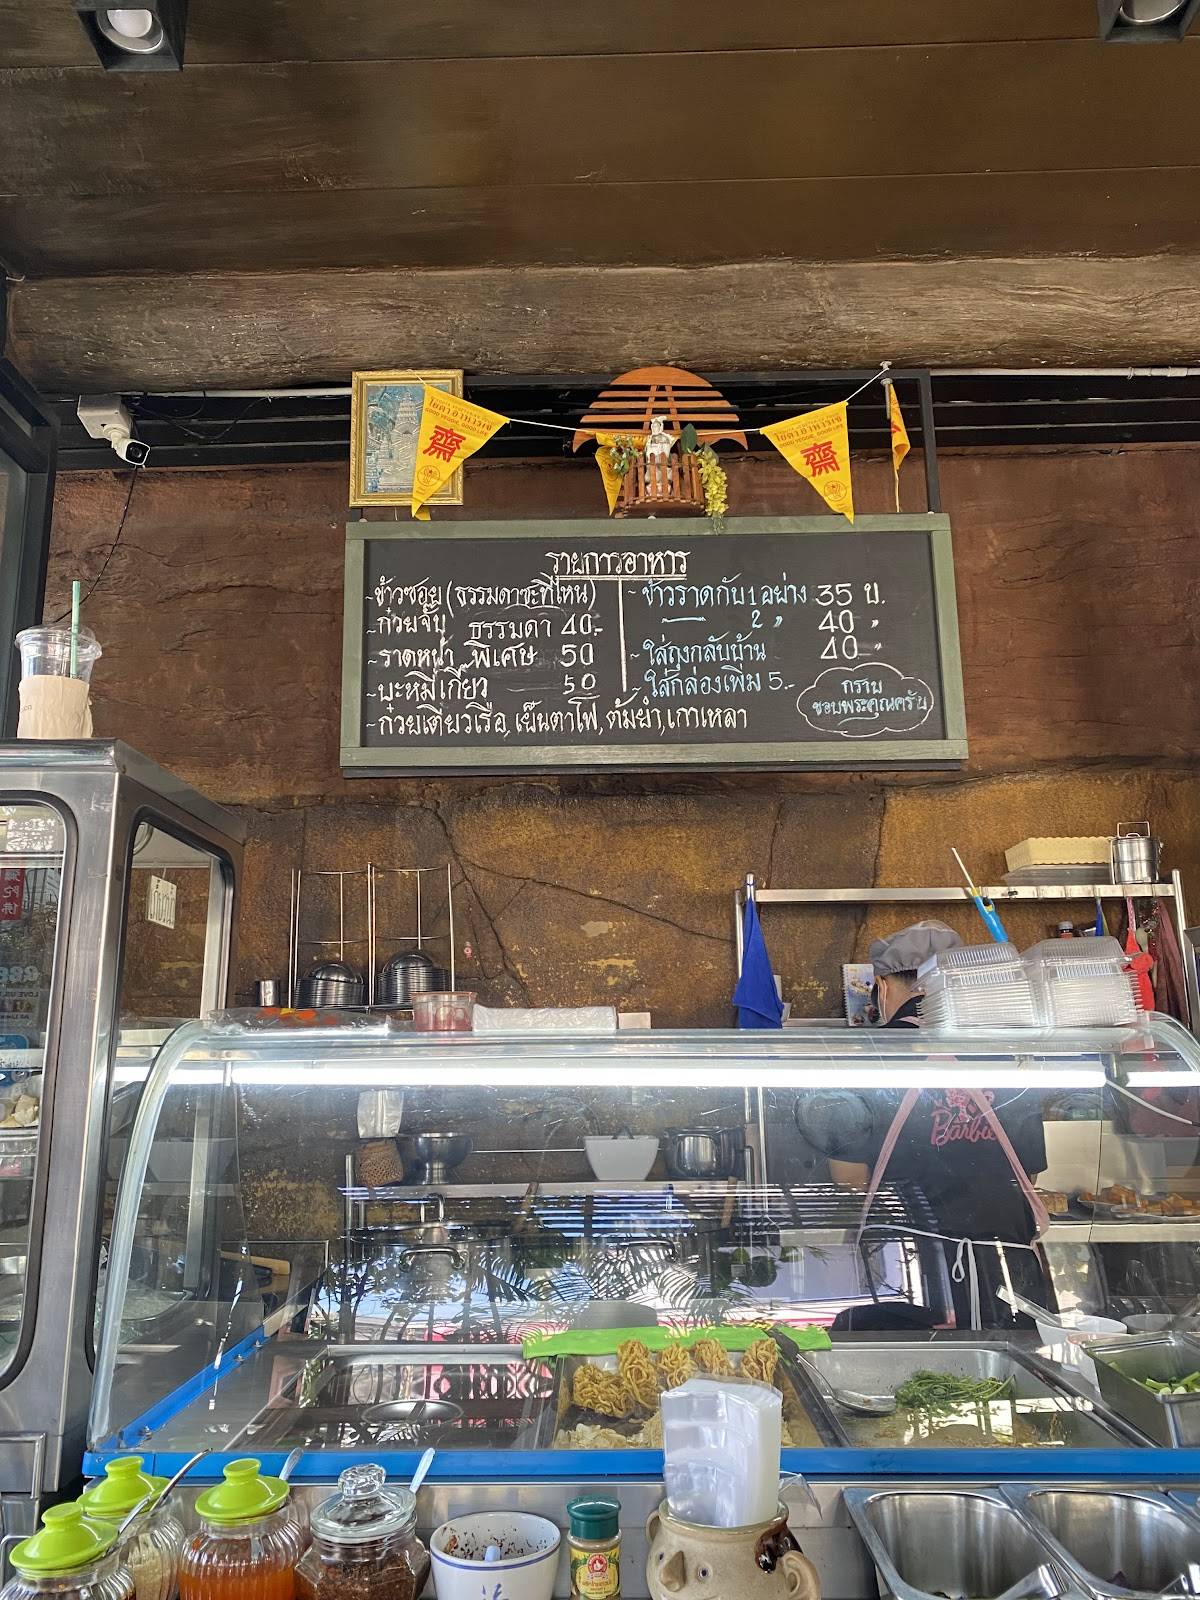 ไชคาอาหารเจ
GOOD VEGGIE, GOOD LIFE
齋
齋
รายการอาหาร
-ข้าวซอย (ธรรมดาซะที่ไหน)
-ก๋วยจั๊บ ธรรมดา 40.-
-ราดหน้า พิเศษ 50
-บะหมี่เกี๊ยว 50
-ก๋วยเตี๋ยวเรือ, เย็นตาโฟ, ต้มยำ, เกาเหลา
-ข้าวราดกับ 1 อย่าง 35 บ.
2 " 40 "
-ใส่ถุงกลับบ้าน 40 "
-ใส่กล่องเพิ่ม 5.-
กราบ
ขอบพระคุณครับ
陀
佛
Barbie